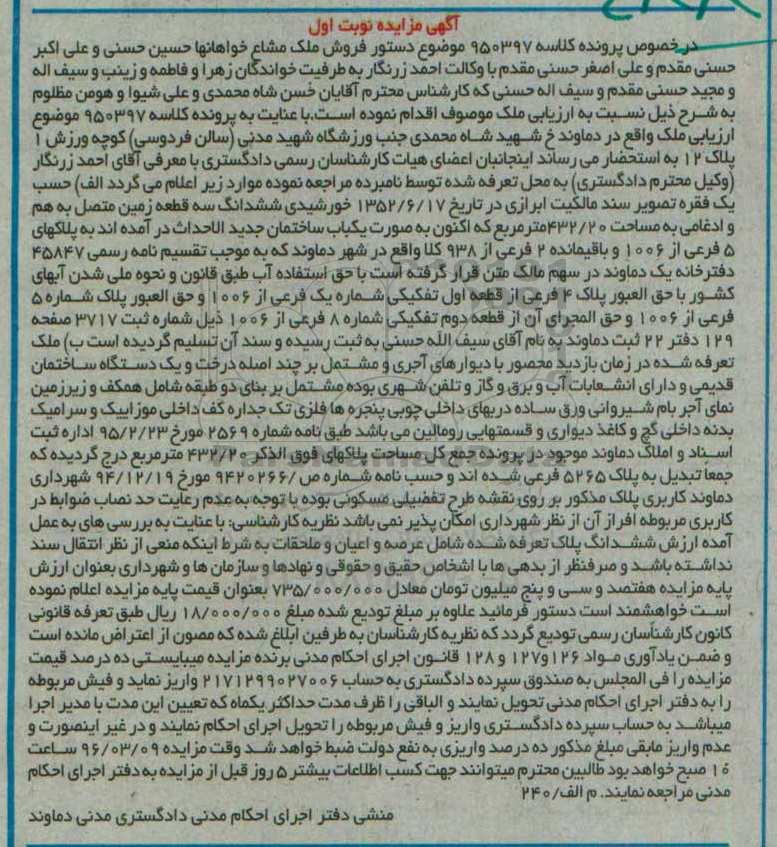 آگهی مزایده نوبت اول
در خصوص پرونده کلاسه ۹۵۰۳۹۷ موضوع دستور فروش ملک مشاع خواهانها حسین حسنی و علی اکبر
حسنی مقدم و علی اصغر حسنی مقدم با وکالت احمد زرنگار به طرفیت خواندگان زهرا و فاطمه و زینب و سیف اله
و مجید حسنی مقدم و سیف اله حسنی که کارشناس محترم آقایان حسن شاه محمدی و علی شیوا و هومن مظلوم
به شرح ذیل نسبت به ارزیابی ملک موصوف اقدام نموده است.با عنایت به پرونده کلاسه ۹۵۰۳۹۷ موضوع
ارزیابی ملک واقع در دماوند خ شهید شاه محمدی جنب ورزشگاه شهید مدنی (سالن فردوسی) کوچه ورزش ۱
پلاک ۱۲ به استحضار می رساند اینجانبان اعضای هیات کارشناسان رسمی دادگستری با معرفی آقای احمد زرنگار
(وکیل محترم دادگستری) به محل تعرفه شده توسط نامبرده مراجعه نموده موارد زیر اعلام می گردد الف) حسب
یک فقره تصویر سند مالکیت ابرازی در تاریخ ۱۳۵۲/۶/۱۷ خورشیدی ششدانگ سه قطعه زمین متصل به هم
و ادغامی به مساحت ۴۳۲/۲۰مترمربع که اکنون به صورت یکباب ساختمان جدید الاحداث در آمده اند به پلاکهای
۵ فرعی از ۱۰۰۶ و باقیمانده ۲ فرعی از ۹۳۸ کلا واقع در شهر دماوند که به موجب تقسیم نامه رسمی ۴۵۸۴۷
دفترخانه یک دماوند در سهم مالک متن قرار گرفته است با حق استفاده آب طبق قانون و نحوه ملی شدن آبهای
کشور با حق العبور پلاک ۴ فرعی از قطعه اول تفکیکی شماره یک فرعی از ۱۰۰۶ و حق العبور پلاک شماره ۵
فرعی از ۱۰۰۶ و حق المجرای آن از قطعه دوم تفکیکی شماره ۸ فرعی از ۱۰۰۶ ذیل شماره ثبت ۳۷۱۷ صفحه
۱۲۹ دفتر ۲۲ ثبت دماوند به نام آقای سیف الله حسنی به ثبت رسیده و سند آن تسلیم گردیده است ب) ملک
تعرفه شده در زمان بازدید محصور با دیوارهای آجری و مشتمل بر چند اصله درخت و یک دستگاه ساختمان
قدیمی و دارای انشعابات آب و برق و گاز و تلفن شهری بوده مشتمل بر بنای دو طبقه شامل همکف و زیرزمین
نمای آجر بام شیروانی ورق ساده دربهای داخلی چوبی پنجره ها فلزی تک جداره کف داخلی موزاییک و سرامیک
بدنه داخلی گچ و کاغذ دیواری و قسمتهایی رومالین می باشد طبق نامه شماره ۲۵۶۹ مورخ ۹۵/۲/۲۳ اداره ثبت
اسناد و املاک دماوند موجود در پرونده جمع کل مساحت پلاکهای فوق الذکر ۴۳۲/۲۰ مترمربع درج گردیده که
جمعا تبدیل به پلاک ۵۲۶۵ فرعی شده اند و حسب نامه شماره ص/۹۴۲۰۲۶۶ مورخ ۹۴/۱۲/۱۹ شهرداری
دماوند کاربری پلاک مذکور بر روی نقشه طرح تفضیلی مسکونی بوده با توجه به عدم رعایت حد نصاب ضوابط در
کاربری مربوطه افراز آن از نظر شهرداری امکان پذیر نمی باشد نظریه کارشناسی: با عنایت به بررسی های به عمل
آمده ارزش ششدانگ پلاک تعرفه شده شامل عرصه و اعیان و ملحقات به شرط اینکه منعی از نظر انتقال سند
نداشته باشد و صرفنظر از بدهی ها با اشخاص حقیق و حقوقی و نهادها و سازمان ها و شهرداری بعنوان ارزش
پایه مزایده هفتصد و سی و پنج میلیون تومان معادل ۷۳۵/۰۰۰/۰۰۰ بعنوان قیمت پایه مزایده اعلام نموده
است خواهشمند است دستور فرمائید علاوه بر مبلغ تودیع شده مبلغ ۱۸/۰۰۰/۰۰۰ ریال طبق تعرفه قانونی
کانون کارشناسان رسمی تودیع گردد که نظریه کارشناسان به طرفین ابلاغ شده که مصون از اعتراض مانده است
و ضمن یادآوری مواد ۱۲۶ و۱۲۷ و ۱۲۸ قانون اجرای احکام مدنی برنده مزایده میبایستی ده درصد قیمت
مزایده را فی المجلس به صندوق سپرده دادگستری به حساب ۲۱۷۱۲۹۹۰۲۷۰۰۶ واریز نماید و فیش مربوطه
را به دفتر اجرای احکام مدنی تحویل نمایند و الباقی را ظرف مدت حداکثر یکماه که تعیین این مدت با مدیر اجرا
میباشد به حساب سپرده دادگستری واریز و فیش مربوطه را تحویل اجرای احکام نمایند و در غیر اینصورت و
عدم واریز مابقی مبلغ مذکور ده درصد واریزی به نفع دولت ضبط خواهد شد وقت مزایده ۹۶/۰۳/۰۹ ساعت
۱۰ صبح خواهد بود طالبین محترم میتوانند جهت کسب اطلاعات بیشتر ۵ روز قبل از مزایده به دفتر اجرای احکام
مدنی مراجعه نمایند. م الف/۲۴۰
منشی دفتر اجرای احکام مدنی دادگستری مدنی دماوند